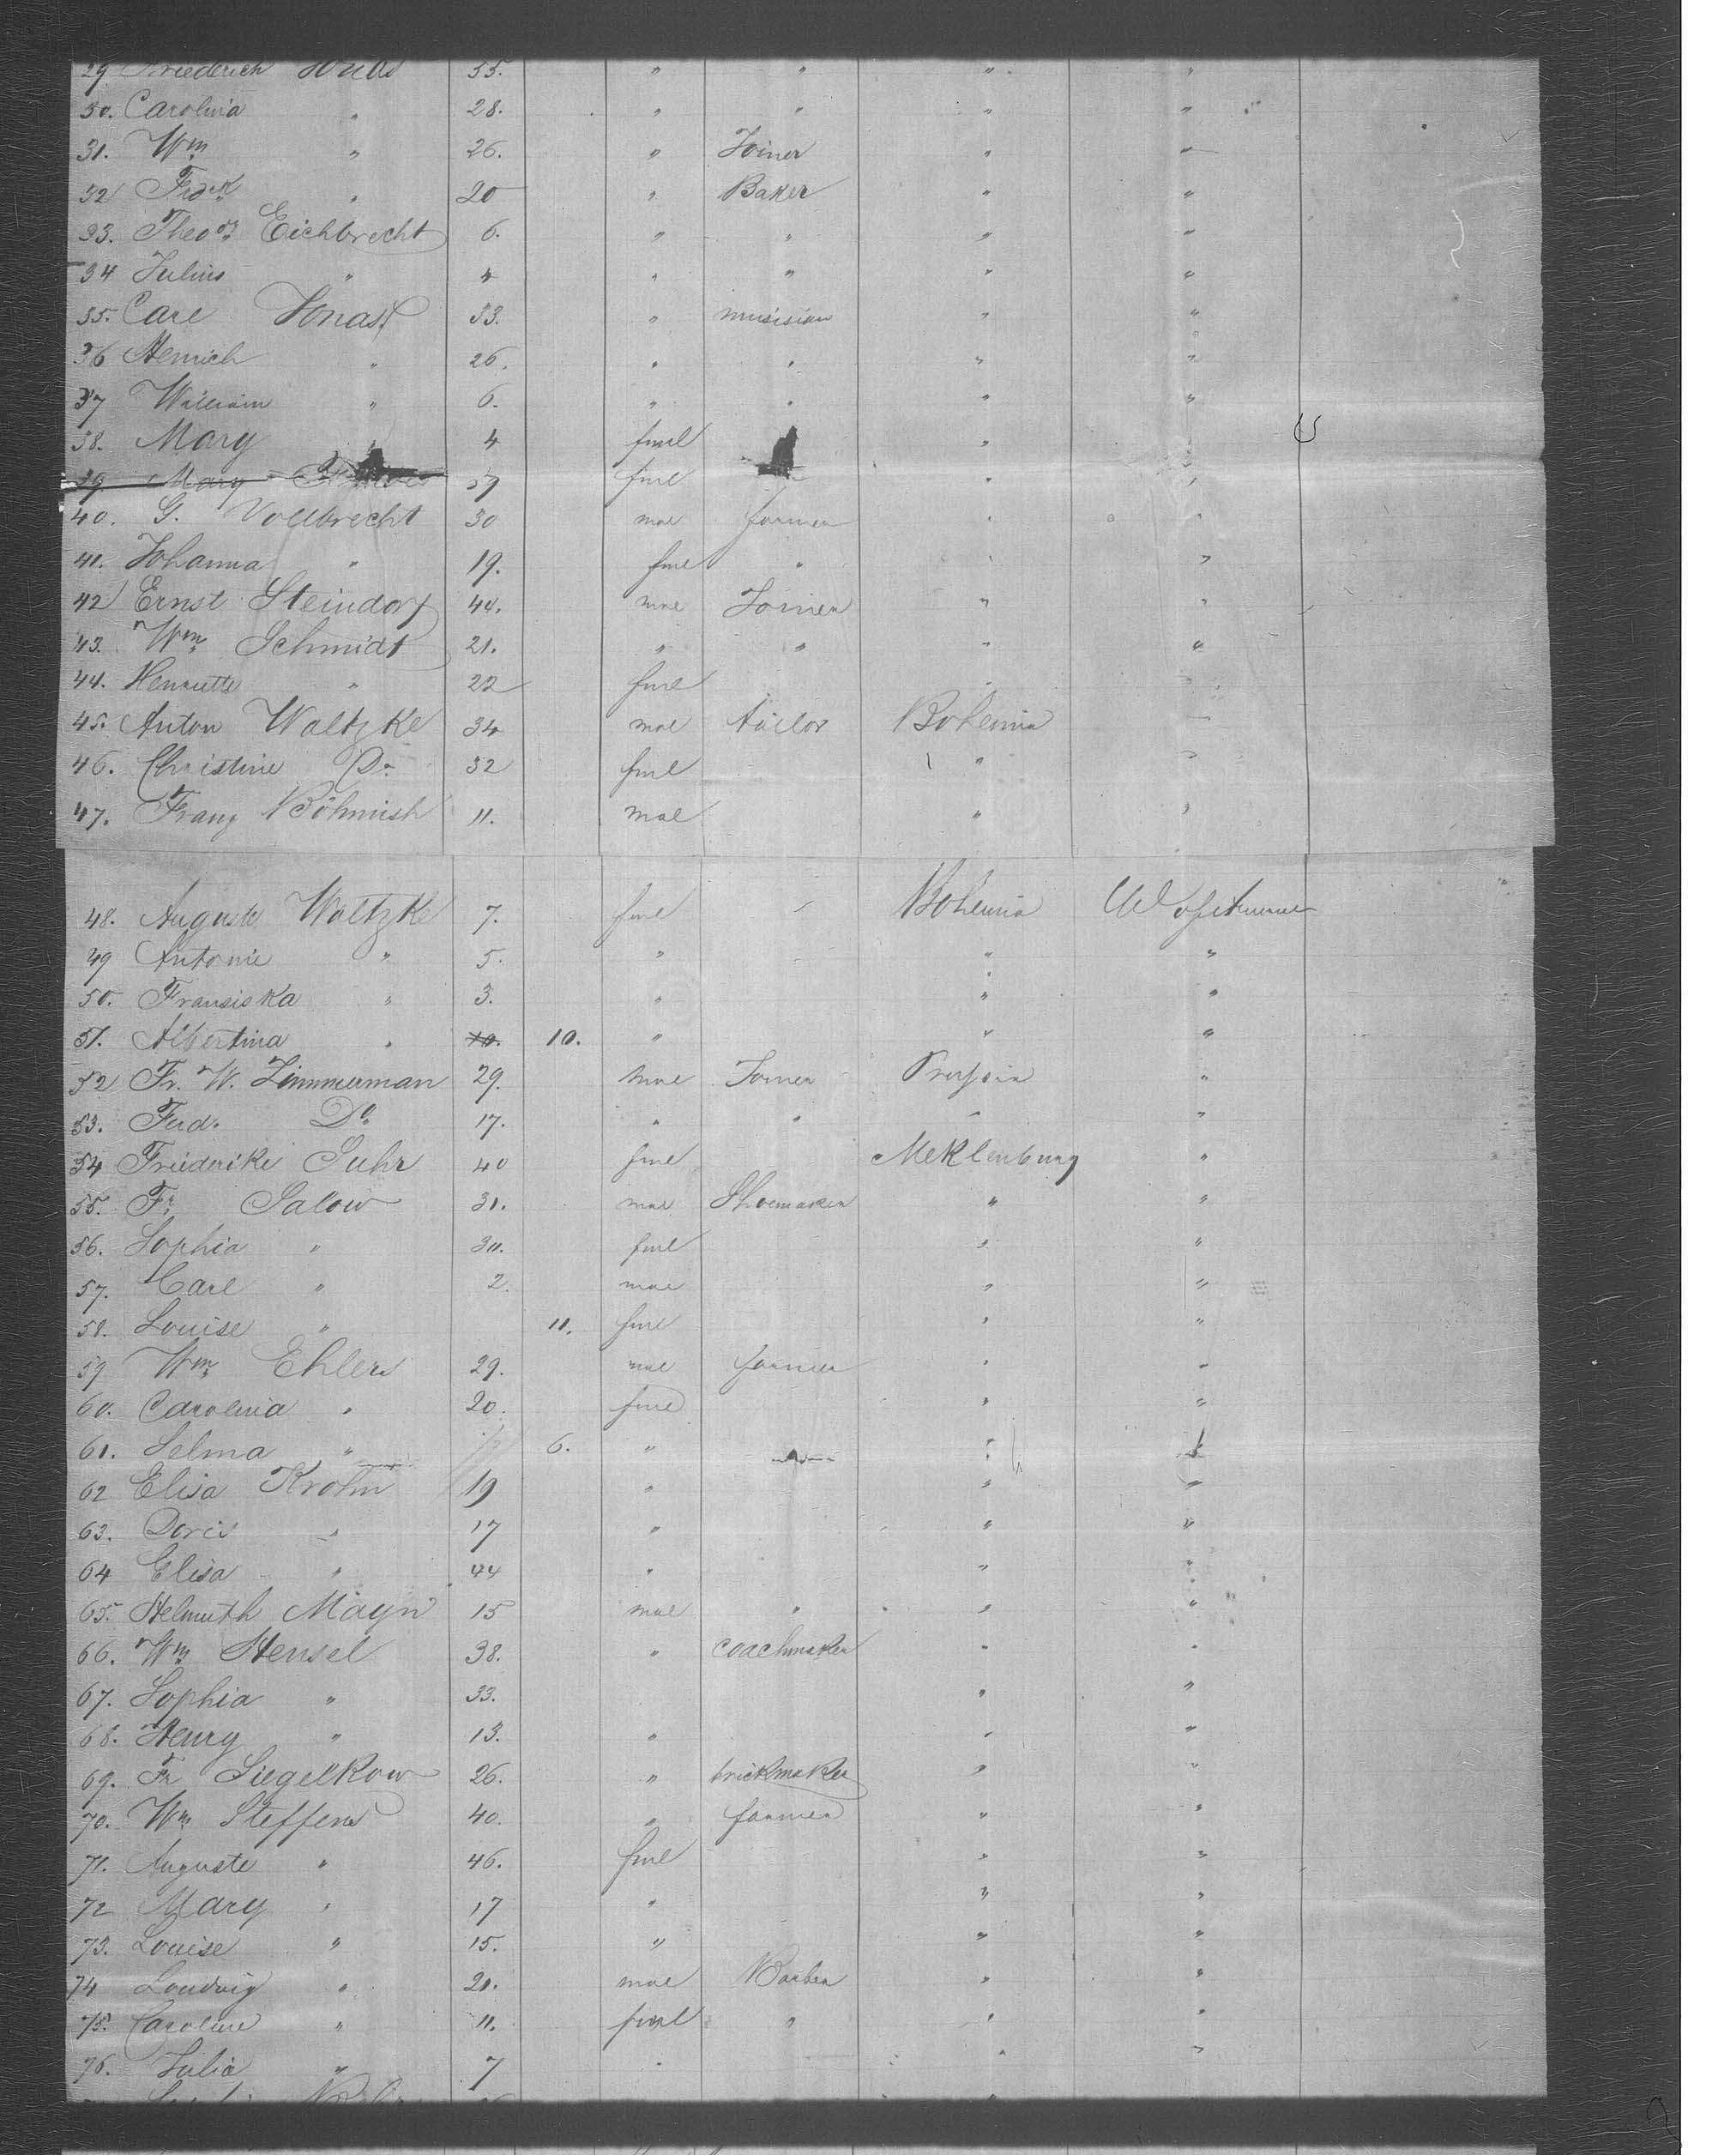 29 Friederich 35. " " " "
30. Carolina " 28. " " " "
31. Wm " 26. " Joiner " "
32 Frdck " 20 " Baker " "
33. Theodr Eichbrecht 6. " " " "
34 Julius " 4 " " " "
35. Carl Jonas 33. " musisian " "
36 Henrich " 26. " " " "
37 William " 6. " " " "
38. Mary 4 fmel "
39. Mary 57 fmel " "
40. G. Vollbrecht 30 mal farmer " "
41. Johanna " 19. fmel " " "
42 Ernst Steindorf 40. mal Joiner " "
43. Wm Schmidt 21. " " " "
44. Henriette " 22 fmel " "
45. Anton Waltzke 34 mal tailor Bohemia
46. Christine Do 32 fmel " "
47. Franz Böhmish 11. mal " "
48. Auguste Waltzke 7. fmel " Bohemia
49 Antonie " 5. " " "
50. Fransiska " 3. " " "
51. Albertina " 10. 10. " " "
52 Fr. W. Zimmerman 29. mal Joiner Prussia "
53. Ferd. Do 17. " " " "
54 Friederike Suhr 40 fmel Meklenburg "
55. Fr. Salow 31. mal Shoemaker " "
56. Sophia " 30. fmel " "
57. Carl " 2. mal " "
58. Louise " 11. fmel " "
59 Wm Ehlers 29. mal farmer " "
60. Carolina " 20. fmel " "
61. Selma " 6. " " "
62 Elisa Krohn 19 " " "
63. Doris " 17 " " "
64 Elisa " 44 " " "
65. Helmuth Mayn 15 mal " " "
66. Wm Hensel 38. " coachmaker " "
67. Sophia " 33. " "
68. Henry " 13. " " "
69. Fr Siegelkow 26. " brickmaker " "
70. Wm Steffens 40. " farmer " "
71. Auguste " 46. fmel " "
72 Mary " 17 " " "
73. Louise " 15. " " "
74 Loudwig " 21. mal Barber " "
75. Caroline " 11. fmel " " "
76. Julia " 7 " " "